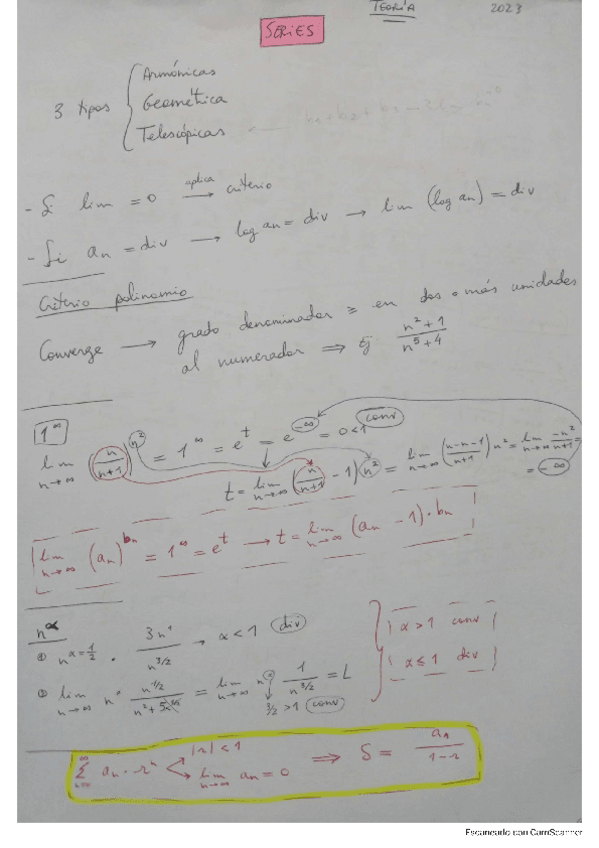 TEORÍA 2023
SERIES
3 tipos { Armónicas
Geométrica
Telescópicas
- Si lim = 0 aplica → criterio
- Si an = div → log an = div → lim (log an) = div
Criterio polinomio
Converge → grado denominador ≥ en dos o más unidades
al numerador ⇒ Ej: (n² + 1)/(n⁵ + 4)
1^∞
lim n→∞ (n/(n+1))^n² = 1^∞ = e^t = e^-∞ = 0 < 1 conv
t = lim n→∞ (n/(n+1) - 1) n² = lim n→∞ ((n-n-1)/(n+1)) n² = lim n→∞ -n²/(n+1) = = -∞
lim n→∞ (an)^bn = 1^∞ = e^t → t = lim n→∞ (an - 1) · bn
n^α
① n^α=1/2 · 3n¹/n^3/2 → α < 1 div
② lim n→∞ n^· n^1/2/(n² + ) = lim n→∞ n^α 1/n^3/2 = L
3/2 > 1 conv
α > 1 conv
α ≤ 1 div
∑ an · r^n |r| < 1
lim n→∞ an = 0 ⇒ S = a1/(1 - r)
Escaneado con CamScanner